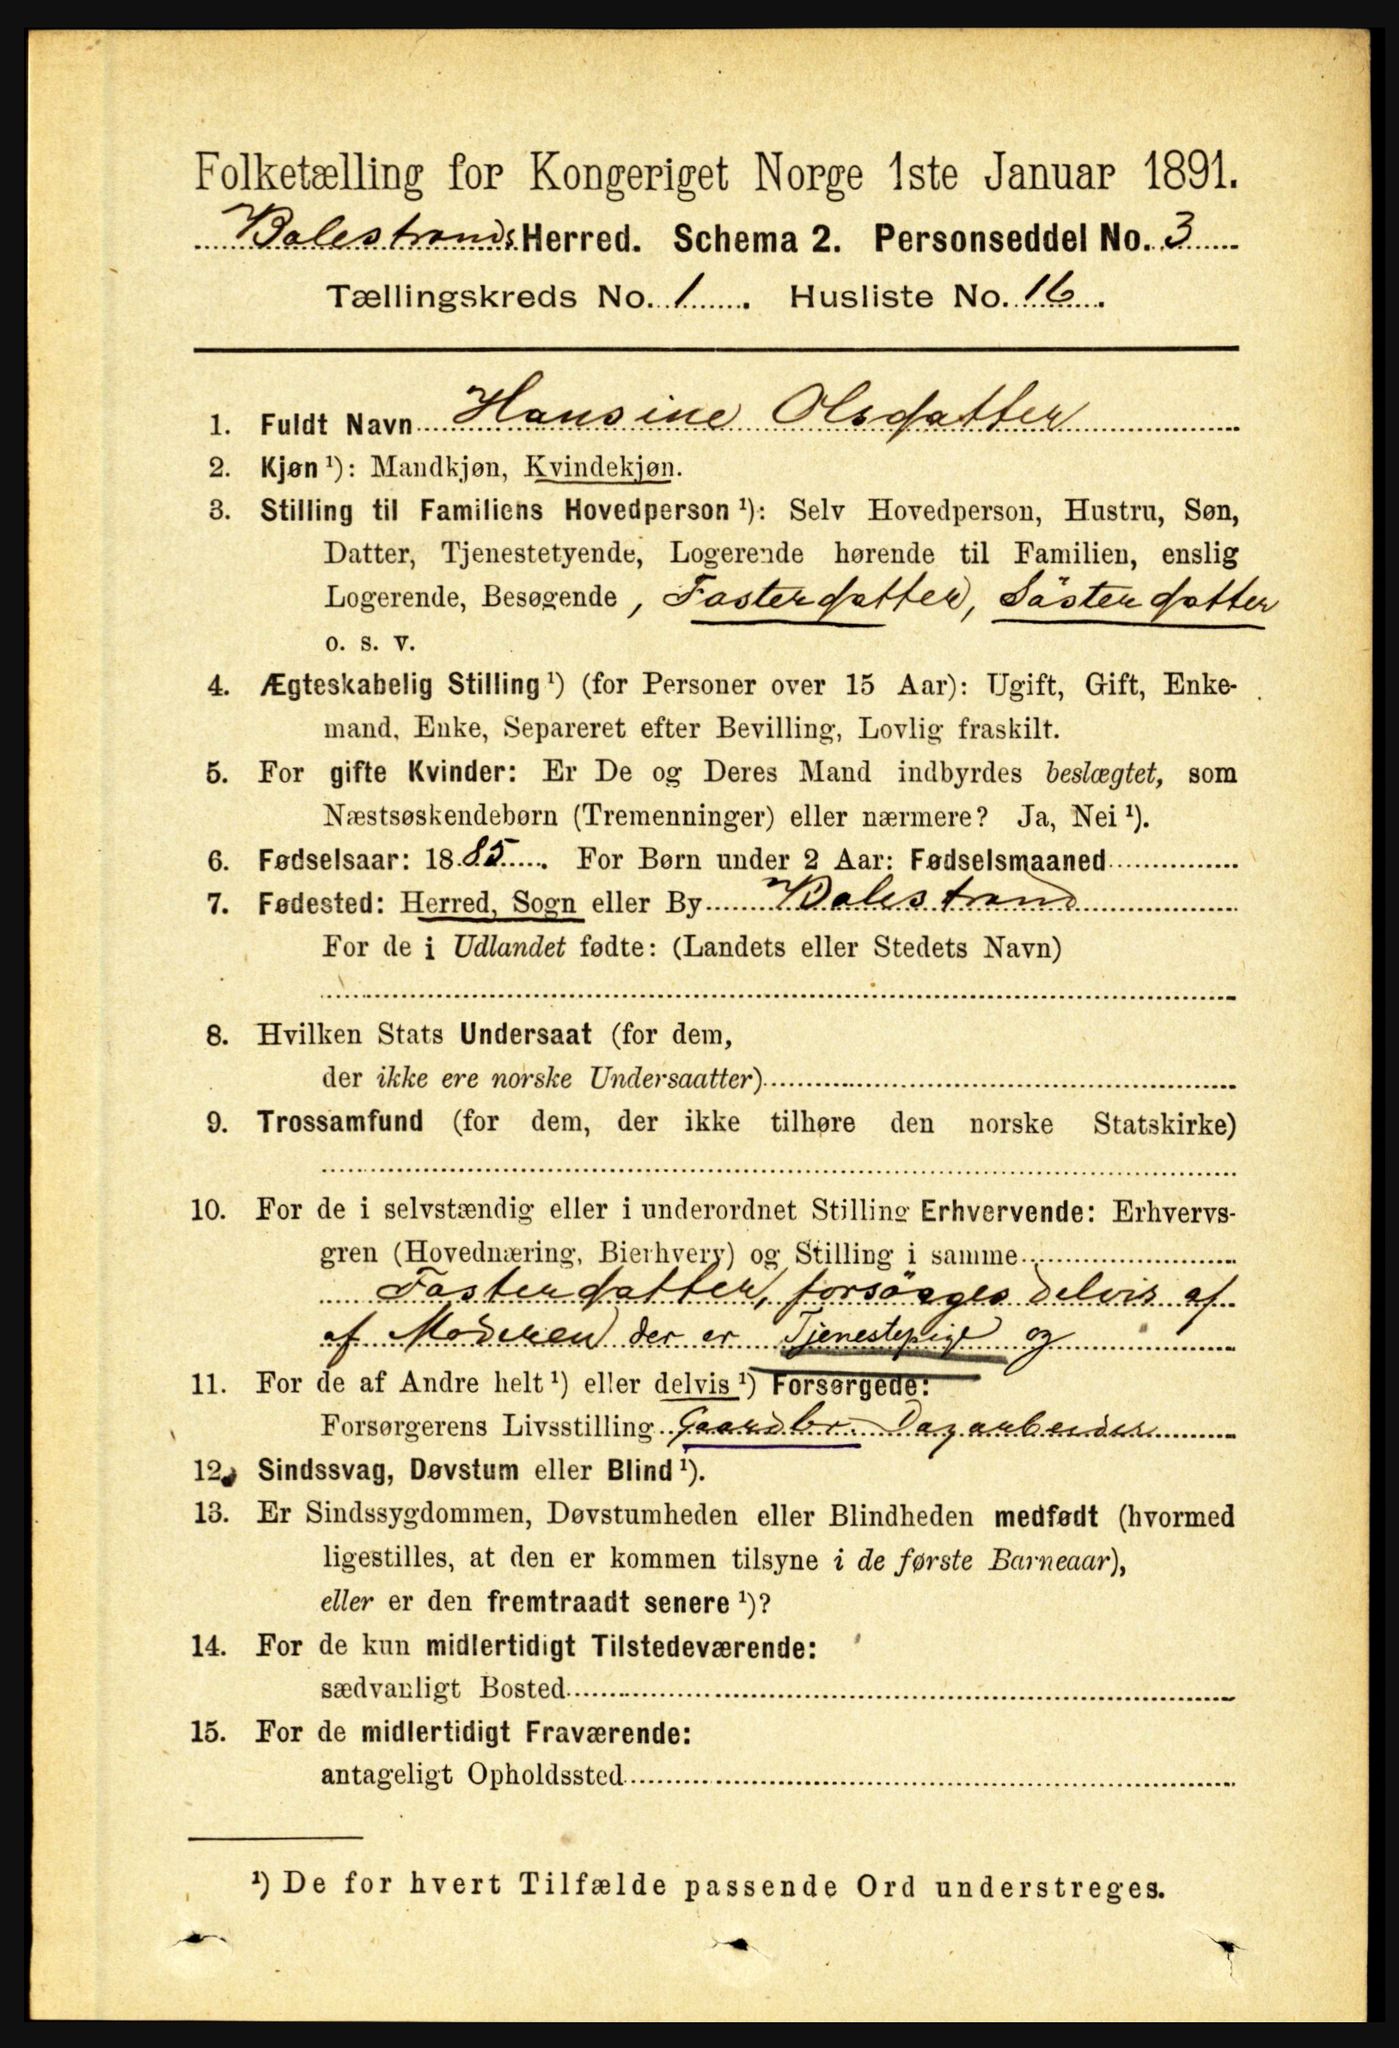 Folketælling for Kongeriget Norge 1ste Januar 1891.
Balestrands Herred. Schema 2. Personseddel No. 3
Tællingskreds No. 1. Husliste No. 16.
1. Fuldt Navn Hansine Olsdatter
2. Kjøn ¹): Mandkjøn, Kvindekjøn.
3. Stilling til Familiens Hovedperson ¹): Selv Hovedperson, Hustru, Søn,
Datter, Tjenestetyende, Logerende hørende til Familien, enslig
Logerende, Besøgende, Fosterdatter, Søsterdatter
o. s. v.
4. Ægteskabelig Stilling ¹) (for Personer over 15 Aar): Ugift, Gift, Enke-
mand, Enke, Separeret efter Bevilling, Lovlig fraskilt.
5. For gifte Kvinder: Er De og Deres Mand indbyrdes beslægtet, som
Næstsøskendebørn (Tremenninger) eller nærmere? Ja, Nei ¹).
6. Fødselsaar: 1885. For Børn under 2 Aar: Fødselsmaaned
7. Fødested: Herred, Sogn eller By Balestrand
For de i Udlandet fødte: (Landets eller Stedets Navn)
8. Hvilken Stats Undersaat (for dem,
der ikke ere norske Undersaatter)
9. Trossamfund (for dem, der ikke tilhøre den norske Statskirke)
10. For de i selvstændig eller i underordnet Stilling Erhvervende: Erhvervs-
gren (Hovednæring, Bierhverv) og Stilling i samme
Fosterdatter, forsørges delvis af
af Moderen der er Tjenestepige og
11. For de af Andre helt ¹) eller delvis ¹) Forsørgede:
Forsørgerens Livsstilling Gaardbr. Dagarbeider
12. Sindssvag, Døvstum eller Blind ¹).
13. Er Sindssygdommen, Døvstumheden eller Blindheden medfødt (hvormed
ligestilles, at den er kommen tilsyne i de første Barneaar),
eller er den fremtraadt senere ¹)?
14. For de kun midlertidigt Tilstedeværende:
sædvanligt Bosted
15. For de midlertidigt Fraværende:
antageligt Opholdssted
¹) De for hvert Tilfælde passende Ord understreges.